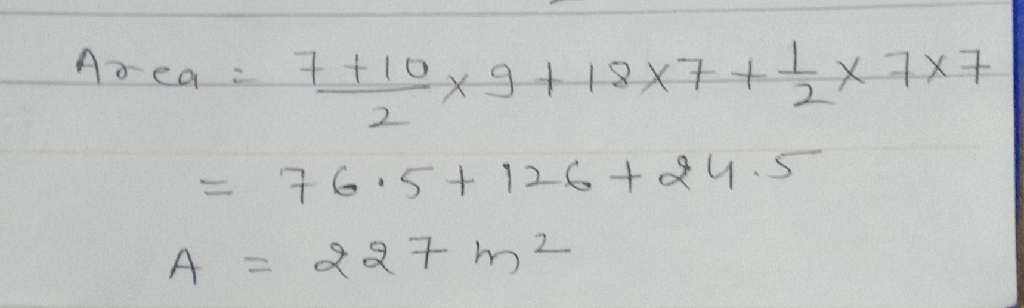 Area = 7+10/2 × 9 + 18×7 + 1/2 × 7×7
= 76.5 + 126 + 24.5
A = 227 m²